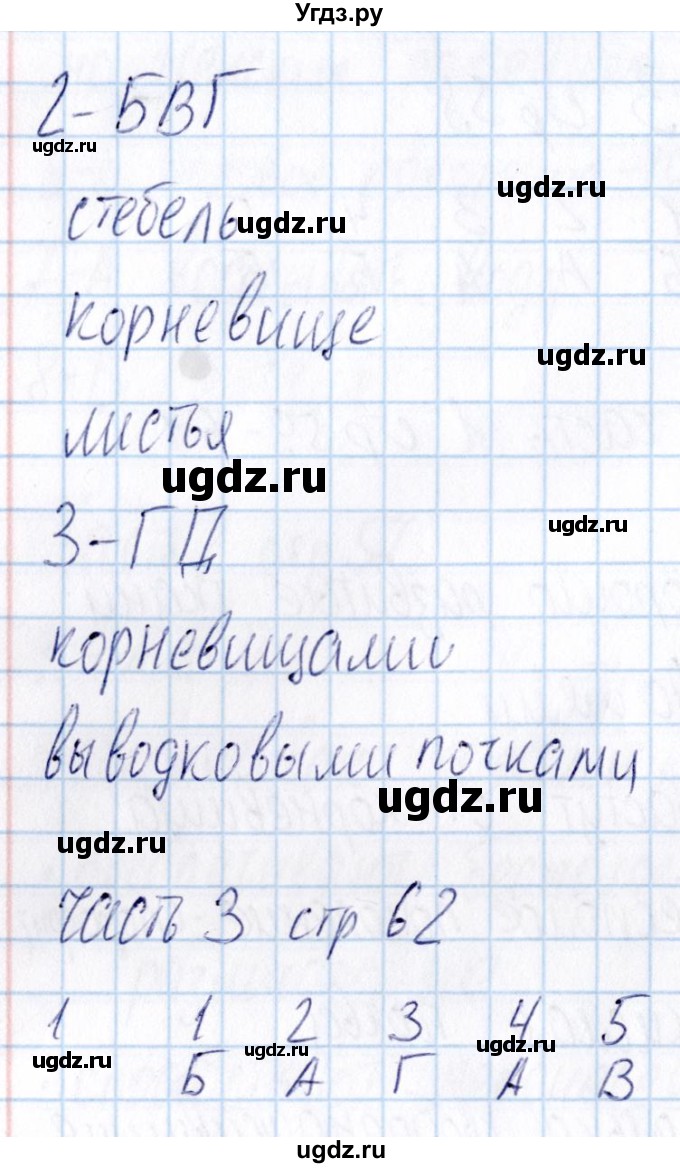 Угдз.ру
2-БВГ
ugdz.ru
ugdz.ru
стебель
ugdz.ru
корневище
ugdz.ru
листья
ugdz.ru
3-ГД
ugdz.ru
корневищами
выводковыми почками
ugdz.ru
ugdz.ru
часть 3 стр 62
1 1 2 3 4 5
ugdz.ru ugdz.ru ugdz.ru
Б А Г А В
ugdz.ru
ugdz.ru